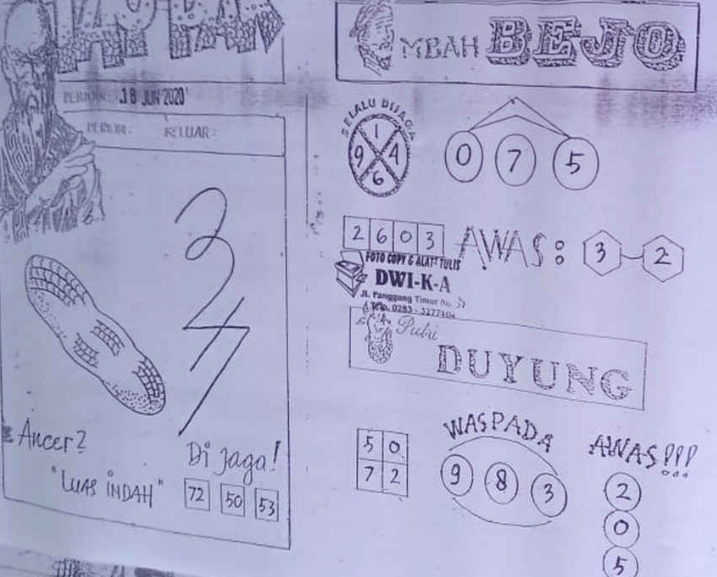 18 JUN 2020
KELUAR:
3
2
4
7
Ancer2
"LUAS INDAH"
Di jaga!
72 50 53
MBAH BEJO
SELALU DIJAGA
1
9 4
6
0 7 5
2 6 0 3
AWAS: 3 2
FOTO COPY & ALAT TULIS
DWI-K-A
Jl. Panggung Timur No.
Putri
DUYUNG
5 0
7 2
WASPADA
9 8 3
AWAS!!!
2
0
5